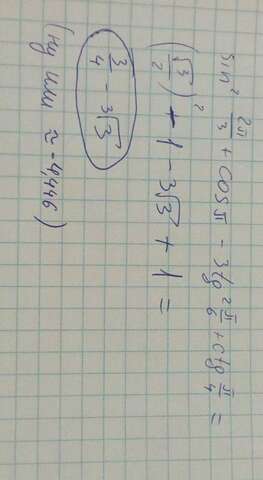 sin² 2π/3 + cos π - 3tg² π/6 + ctg π/4 =
(√3/2)² + 1 - 3√3 + 1 =
3/4 - 3√3
(ну или ≈ -4,446)